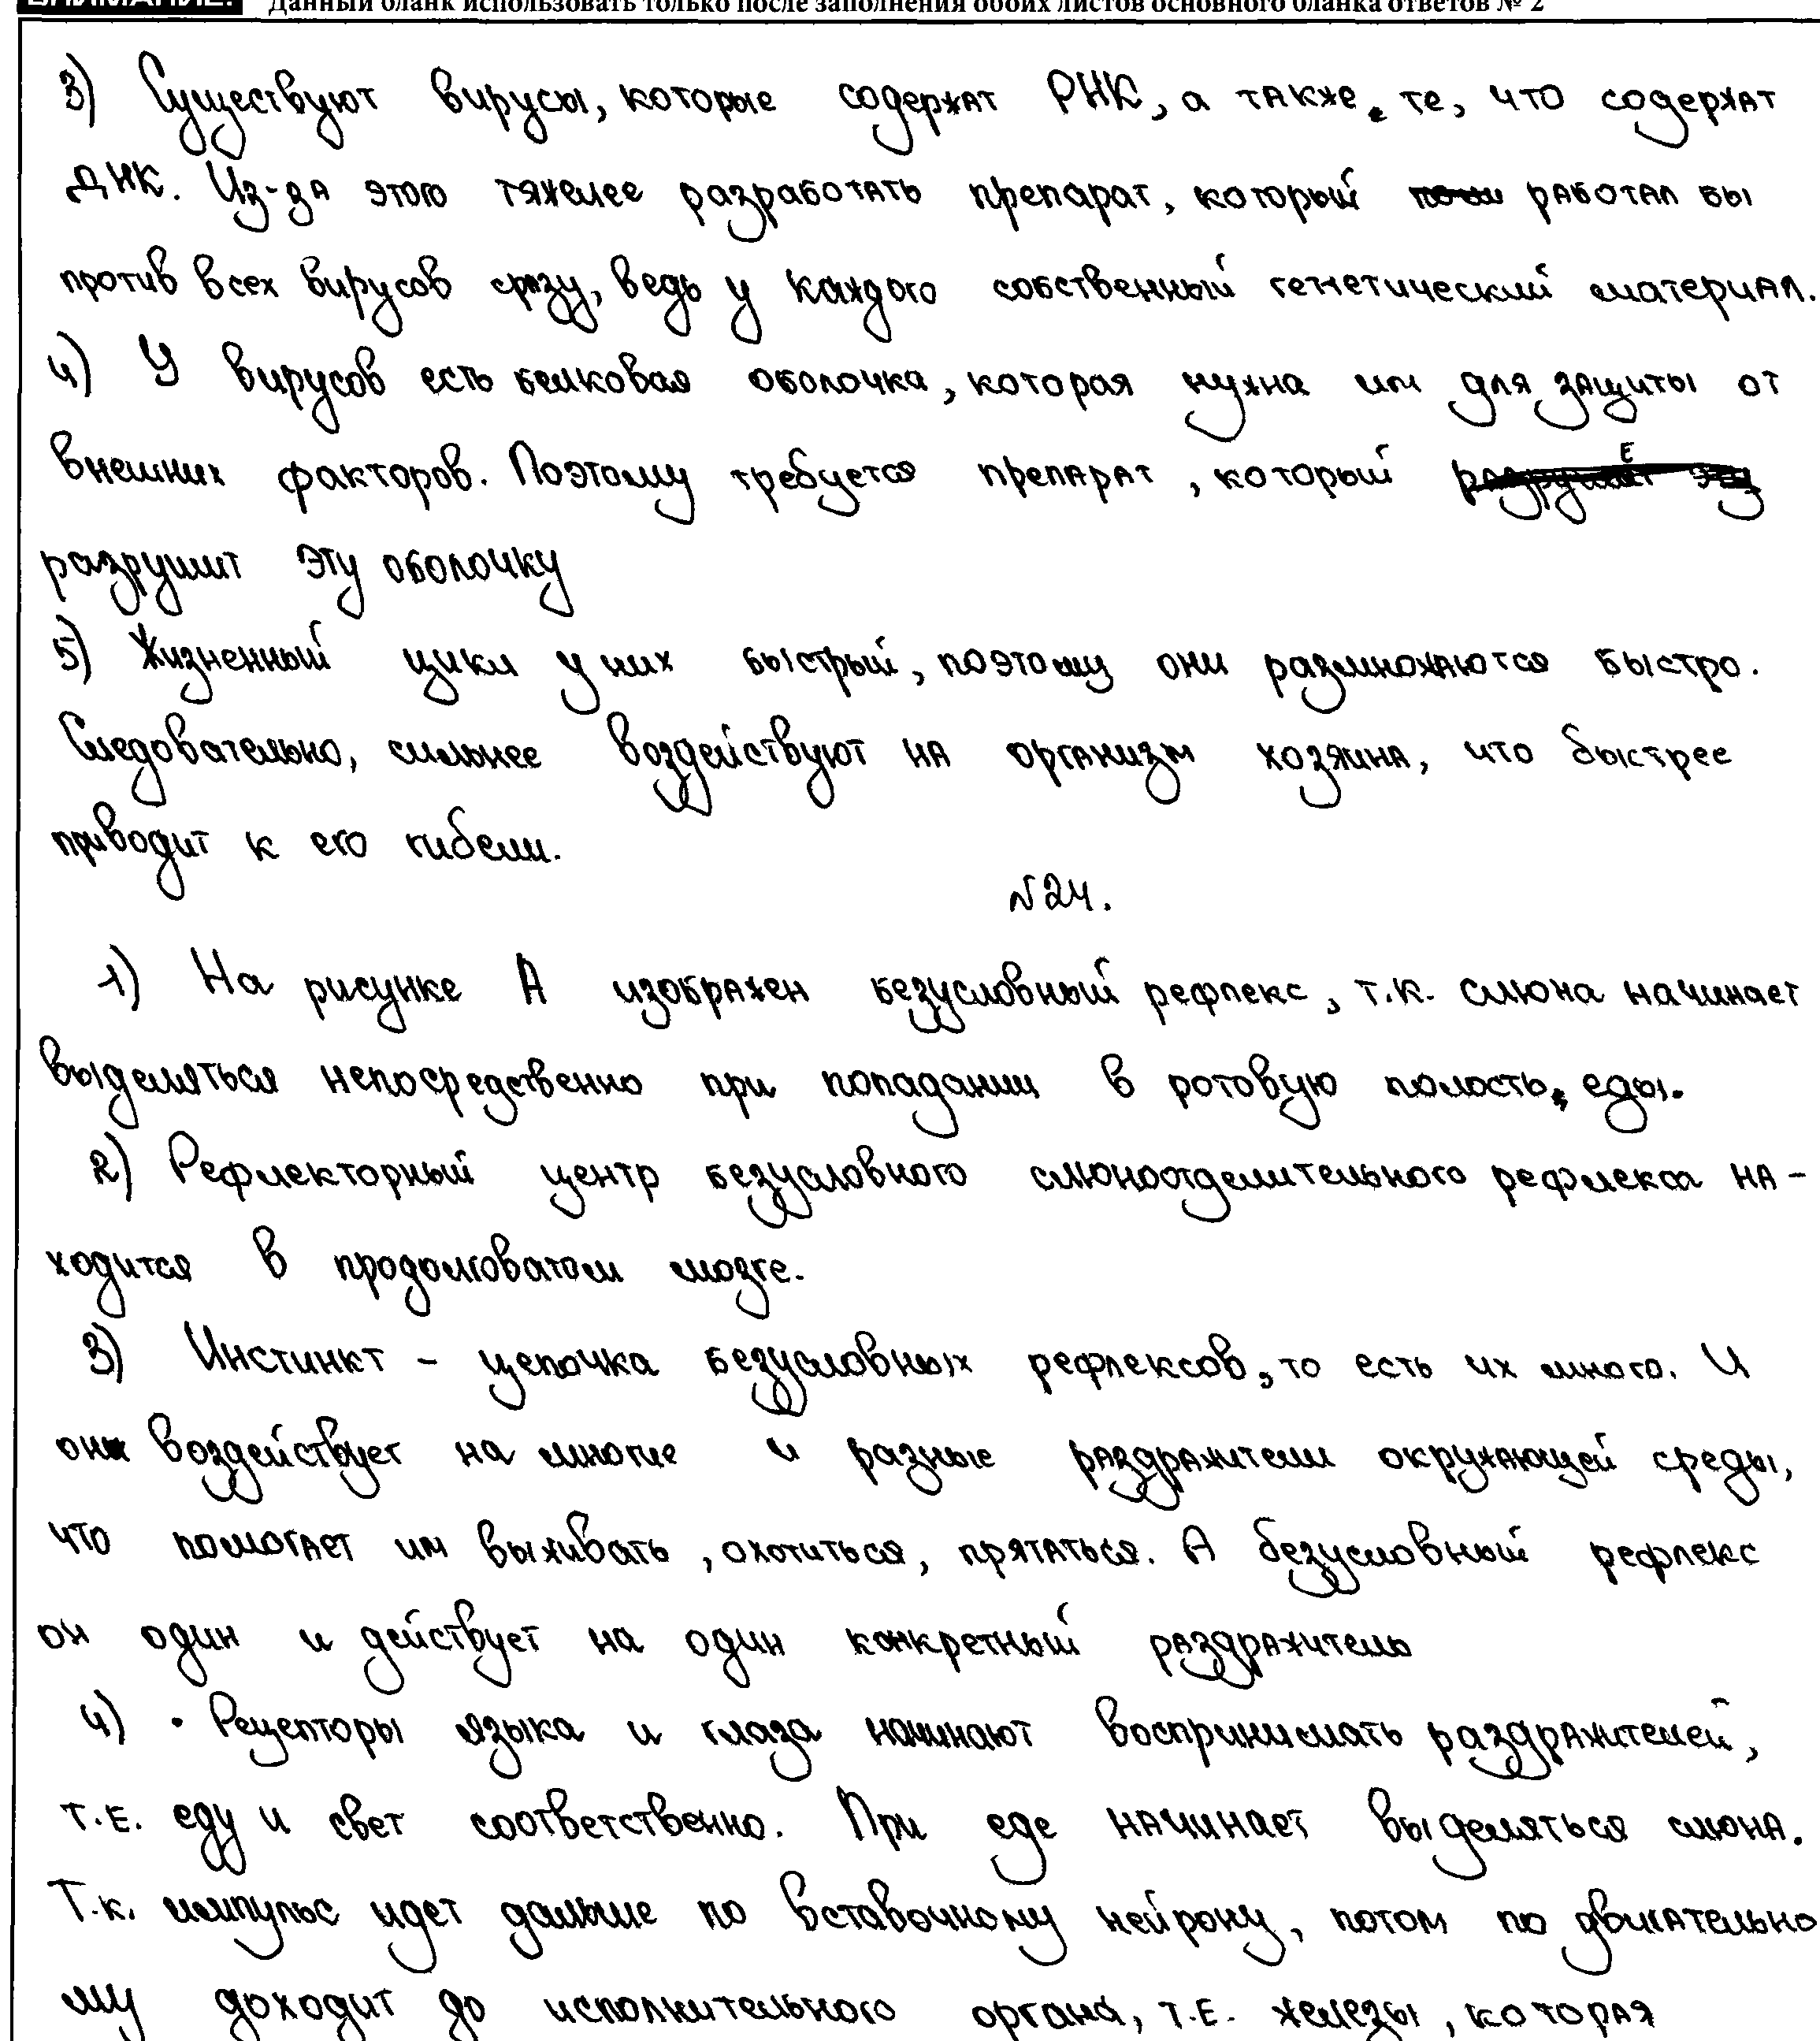 ВНИМАНИЕ! Данный бланк использовать только после заполнения обоих листов основного бланка ответов № 2
3) Существуют вирусы, которые содержат РНК, а также те, что содержат
ДНК. Из-за этого тяжелее разработать препарат, который работал бы
против всех вирусов сразу, ведь у каждого собственный генетический материал.
4) У вирусов есть белковая оболочка, которая нужна им для защиты от
внешних факторов. Поэтому требуется препарат, который
разрушит эту оболочку
5) Жизненный цикл у них быстрый, поэтому они размножаются быстро.
Следовательно, сильнее воздействуют на организм хозяина, что быстрее
приводит к его гибели.
№24.
1) На рисунке А изображен безусловный рефлекс, т.к. слюна начинает
выделяться непосредственно при попадании в ротовую полость еды.
2) Рефлекторный центр безусловного слюноотделительного рефлекса на-
ходится в продолговатом мозге.
3) Инстинкт - цепочка безусловных рефлексов, то есть их много. И
он воздействует на многие и разные раздражители окружающей среды,
что помогает им выживать, охотиться, прятаться. А безусловный рефлекс
он один и действует на один конкретный раздражитель
4) • Рецепторы языка и глаза начинают воспринимать раздражителей,
т.е. еду и свет соответственно. При еде начинает выделяться слюна.
Т.к. импульс идет дальше по вставочному нейрону, потом по двигательно
му доходит до исполнительного органа, т.е. железы, которая